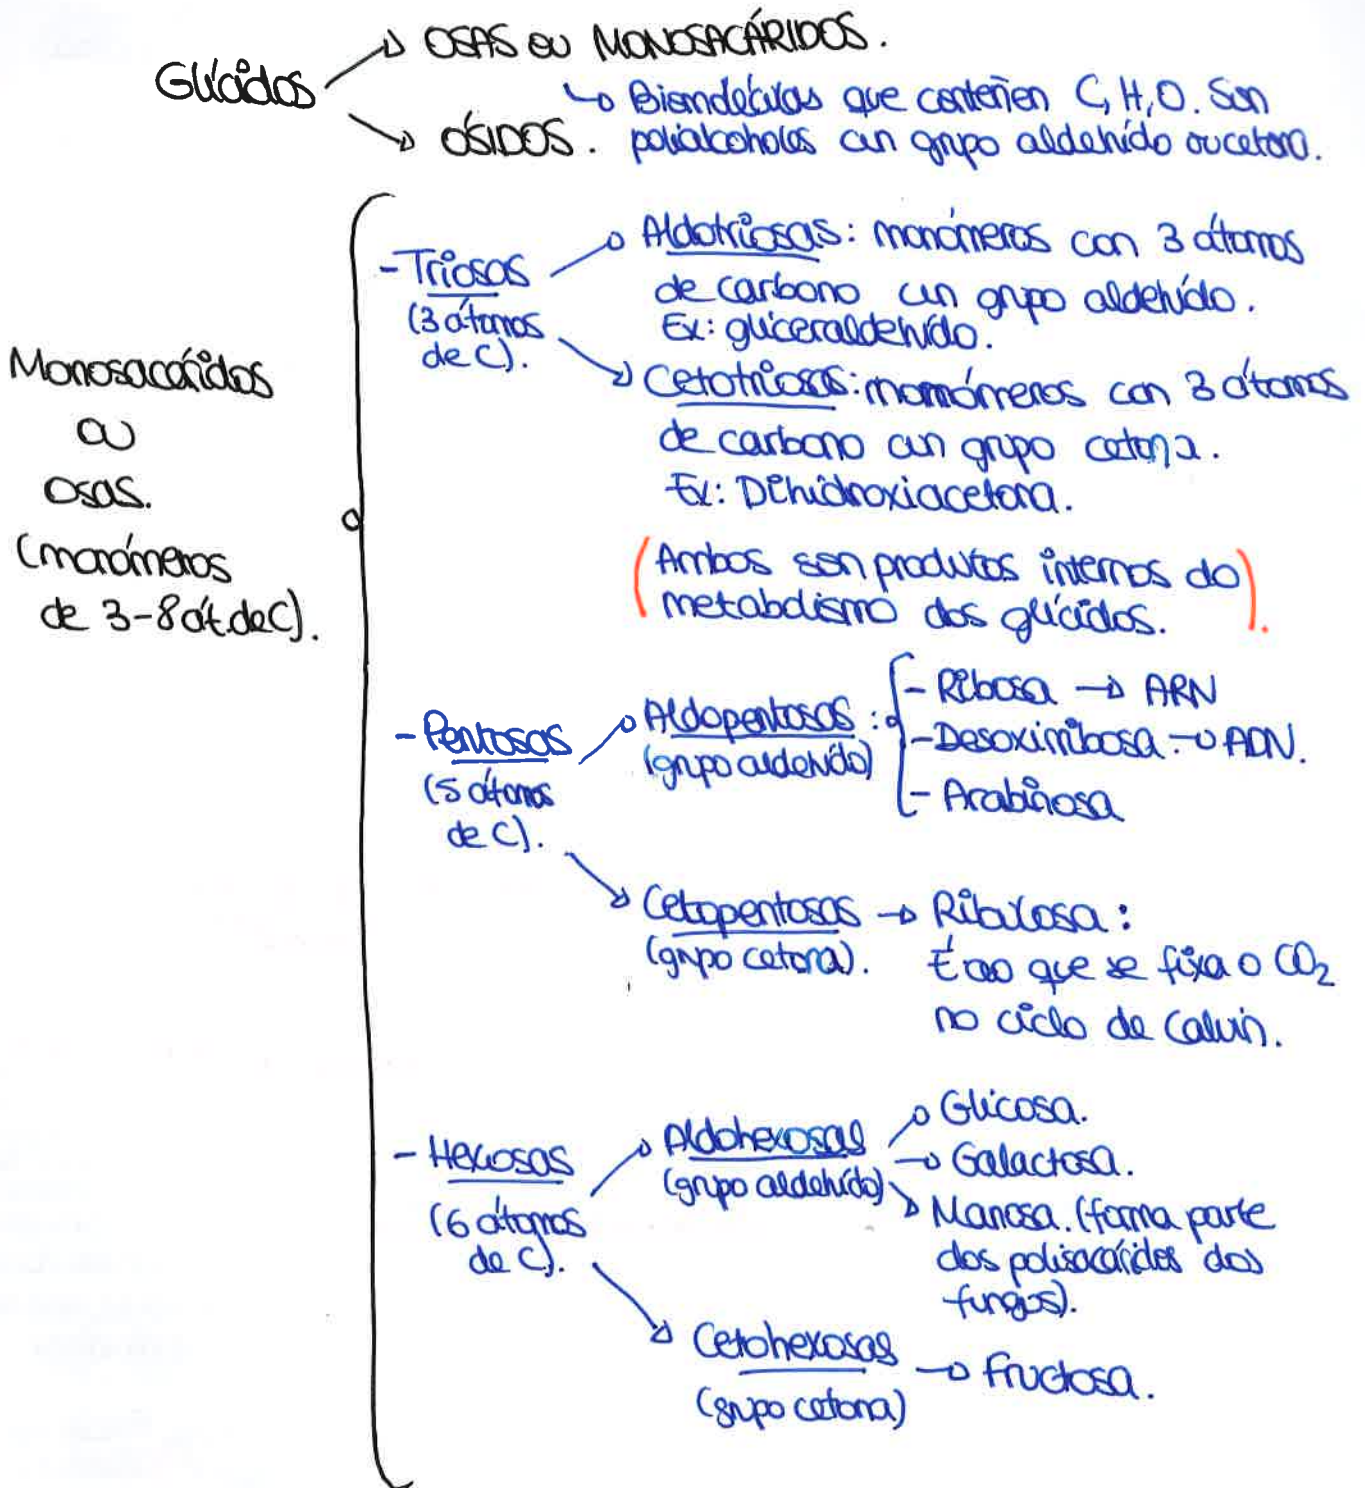 Glícidos
OSAS OU MONOSACÁRIDOS.
Biomoléculas que conteñen C, H, O. Son
polialcoholes cun grupo aldehído ou cetona.
ÓSIDOS.
Monosacáridos
ou
osas.
(monómeros
de 3-8 át. de C).
- Triosas
(3 átomos
de C).
Aldotriosas: monómeros con 3 átomos
de carbono cun grupo aldehído.
Ex: gliceraldehído.
Cetotriosas: monómeros con 3 átomos
de carbono cun grupo cetona.
Ex: Dihidroxiacetona.
(Ambos son produtos internos do
metabolismo dos glícidos.).
- Pentosas
(5 átomos
de C).
Aldopentosas:
(grupo aldehído)
- Ribosa → ARN
- Desoxirribosa → ADN.
- Arabinosa
Cetopentosas → Ribulosa:
(grupo cetona).
É ao que se fixa o CO2
no ciclo de Calvin.
- Hexosas
(6 átomos
de C).
Aldohexosas
(grupo aldehído)
Glicosa.
Galactosa.
Manosa. (forma parte
dos polisacáridos dos
fungos).
Cetohexosas → Fructosa.
(grupo cetona)